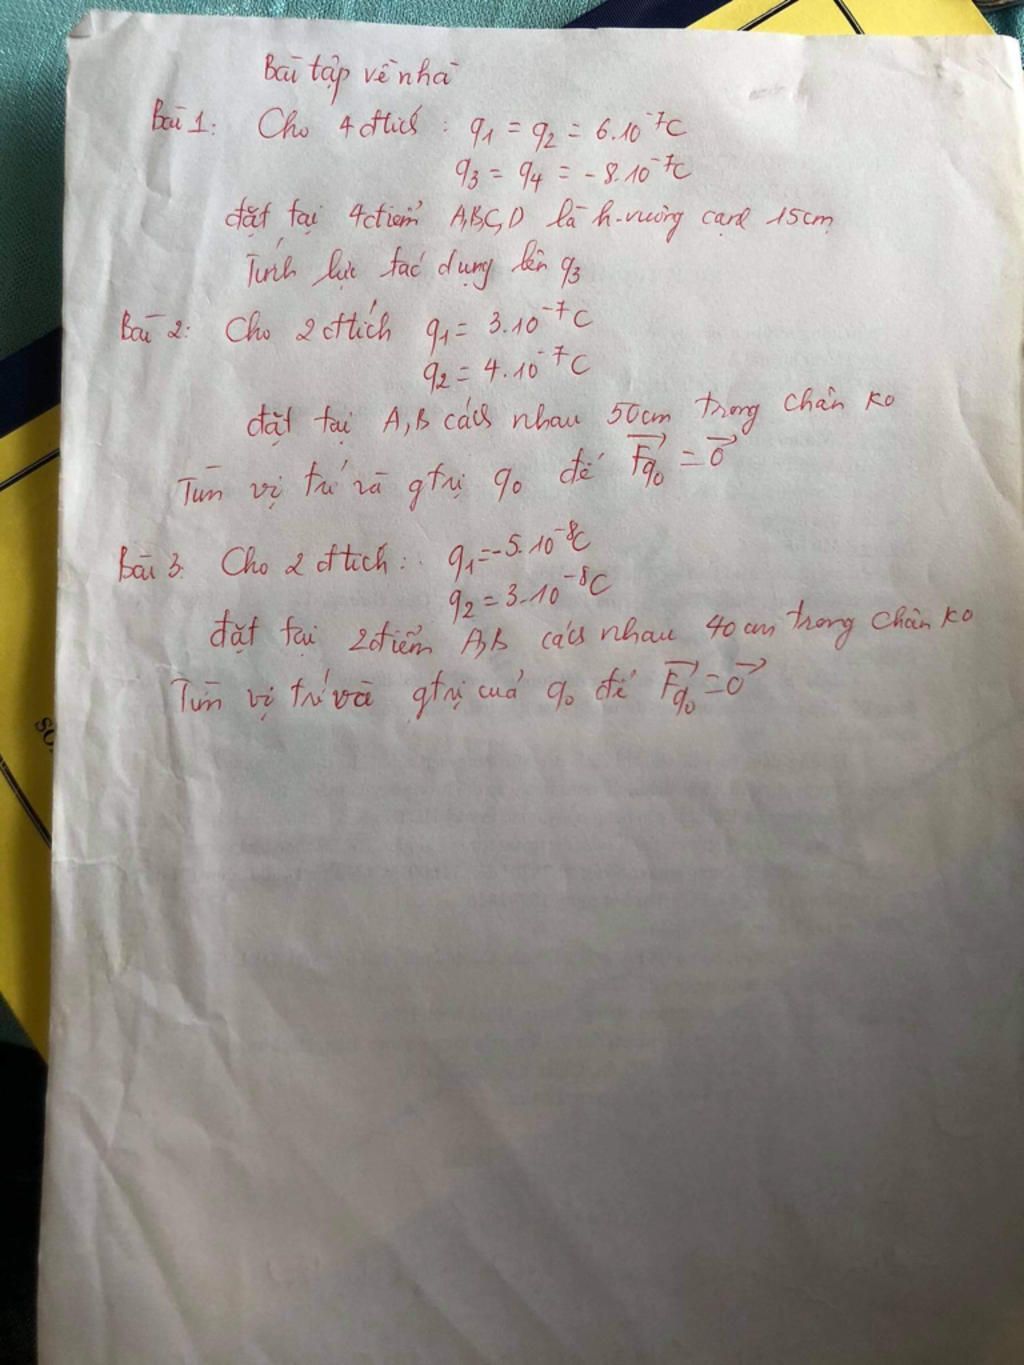 Bài tập về nhà
Bài 1: Cho 4 đtích : q₁ = q₂ = 6.10⁻⁷C
q₃ = q₄ = -8.10⁻⁷C
đặt tại 4 điểm A,B,C,D là h.vuông cạnh 15cm
Tính lực tác dụng lên q₃
Bài 2: Cho 2 đtích q₁ = 3.10⁻⁷C
q₂ = 4.10⁻⁷C
đặt tại A,B cách nhau 50cm trong chân ko
Tìm vị trí và gtrị q₀ để F⃗q₀ = 0⃗
Bài 3: Cho 2 đtích : q₁ = -5.10⁻⁸C
q₂ = 3.10⁻⁸C
đặt tại 2 điểm A,B cách nhau 40 cm trong chân ko
Tìm vị trí và gtrị của q₀ để F⃗q₀ = 0⃗